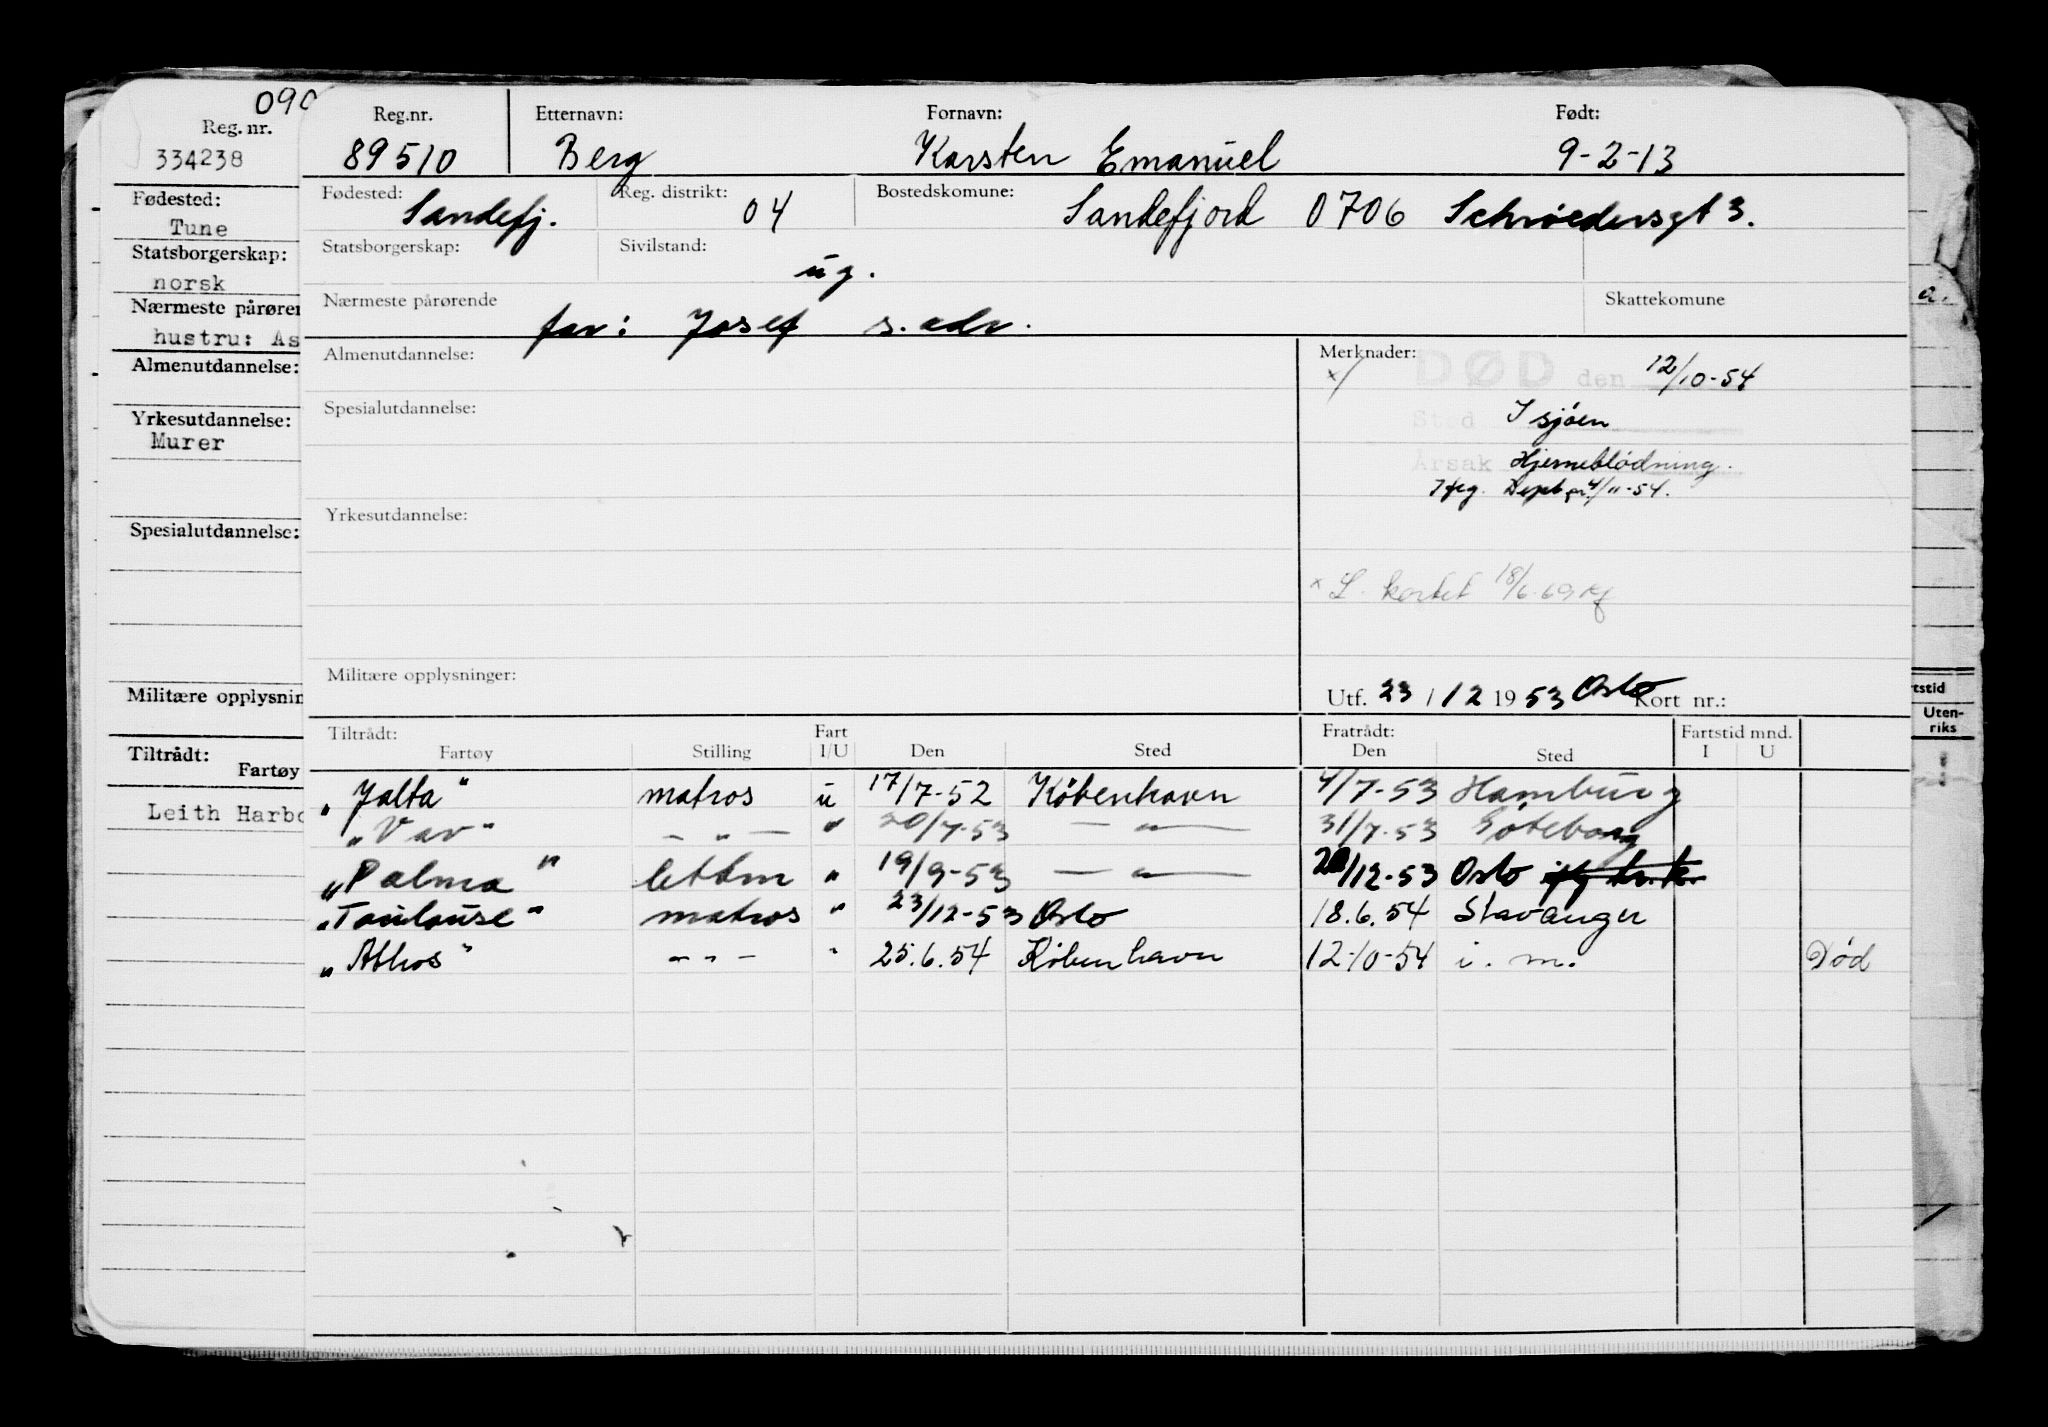 090
Reg. nr.
334238
Fødested:
Tune
Statsborgerskap:
norsk
Nærmeste pårøren
hustru: As
Almenutdannelse:
Yrkesutdannelse:
Murer
Spesialutdannelse:
Militære opplysnin
Tiltrådt:
Fartøy
Leith Harbo
Reg.nr. Etternavn: Fornavn: Født:
89510 Berg Karsten Emanuel 9-2-13
Fødested: Reg. distrikt: Bostedskomune:
Sandefj. 04 Sandefjord 0706 Schrøedersgt 3.
Statsborgerskap: Sivilstand:
ug.
Nærmeste pårørende Skattekomune
far: Josef s. adr.
Almenutdannelse: Merknader:
x/ DØD den 12/10-54
Spesialutdannelse: Sted I sjøen
Årsak Hjerneblødning.
Iføg. Dept. 4/11-54.
Yrkesutdannelse:
x L. kortet 18/6-69
Militære opplysninger:
Utf. 23 / 12 1953 Oslo Kort nr.:
Tiltrådt: Fart Fratrådt: Fartstid mnd.
Fartøy Stilling I/U Den Sted Den Sted I U
"Jalta" matros u 17/7-52 København 4/7-53 Hamburg
"Var" — " — " 20/7-53 — " — 31/7-53 Gøteborg
"Palma" lettm " 19/9-53 — " — 20/12-53 Oslo
"Toulouse" matros " 23/12-53 Oslo 18.6.54 Stavanger
"Athos" - - - " 25.6.54 København 12-10-54 i. m. Død
a.
rtstid
Uten-
riks